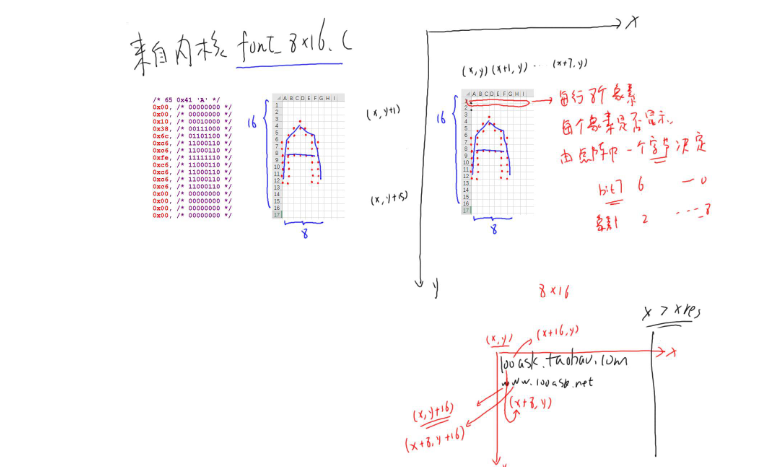 来自内核 font_8x16.c
/* 65 0x41 'A' */
0x00, /* 00000000 */
0x00, /* 00000000 */
0x10, /* 00010000 */
0x38, /* 00111000 */
0x6c, /* 01101100 */
0xc6, /* 11000110 */
0xc6, /* 11000110 */
0xfe, /* 11111110 */
0xc6, /* 11000110 */
0xc6, /* 11000110 */
0xc6, /* 11000110 */
0xc6, /* 11000110 */
0x00, /* 00000000 */
0x00, /* 00000000 */
0x00, /* 00000000 */
0x00, /* 00000000 */
16
A B C D E F G H I
1
2
3
4
5
6
7
8
9
10
11
12
13
14
15
16
17
8
x
(x,y) (x+1,y) ... (x+7,y)
(x,y+1)
(x,y+15)
y
16
A B C D E F G H I
1
2
3
4
5
6
7
8
9
10
11
12
13
14
15
16
17
8
每行8个象素
每个象素是否显示,
由点阵中一个字节决定
bit7 6 — 0
象素1 2 ---- 8
8x16
x > xres
(x,y)
(x+16,y)
x
100ask.taobao.com
www.100ask.net
(x+8,y)
(x,y+16)
(x+8,y+16)
y